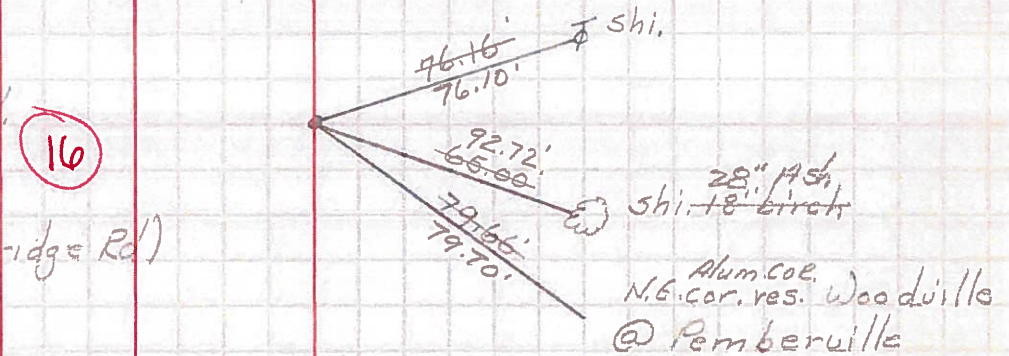 shi.
76.16'
76.10'
16
92.72'
65.00
28" Ash
shi. 18" birch
79.66'
79.70'
idge Rd)
Alum. col.
N.E. cor. res. Woodville
@ Pemberville